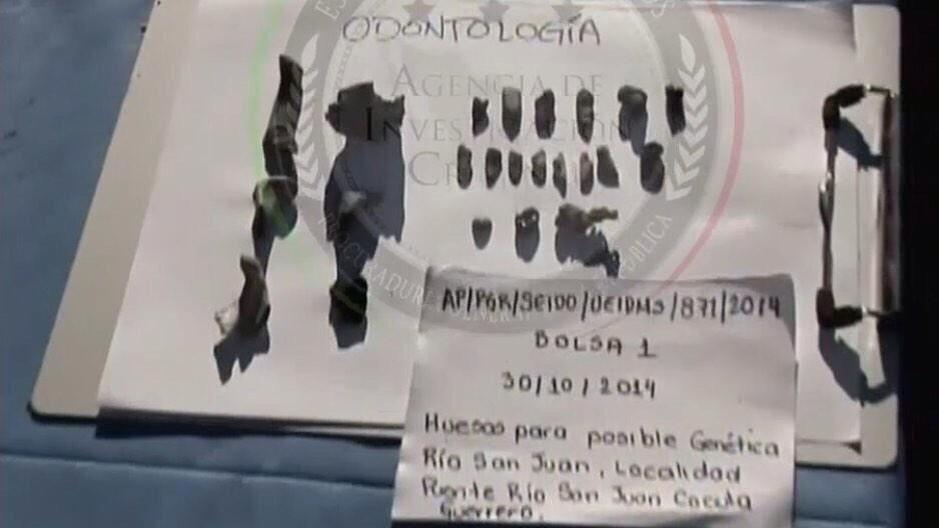 ODONTOLOGÍA
AGENCIA DE
INVESTIGACIÓN
AP/PGR/SEIDO/UEIDMS/871/2014
BOLSA 1
30/10/2014
Huesos para posible Genética
Río San Juan, Localidad
Puente Río San Juan Cocula
Guerrero.